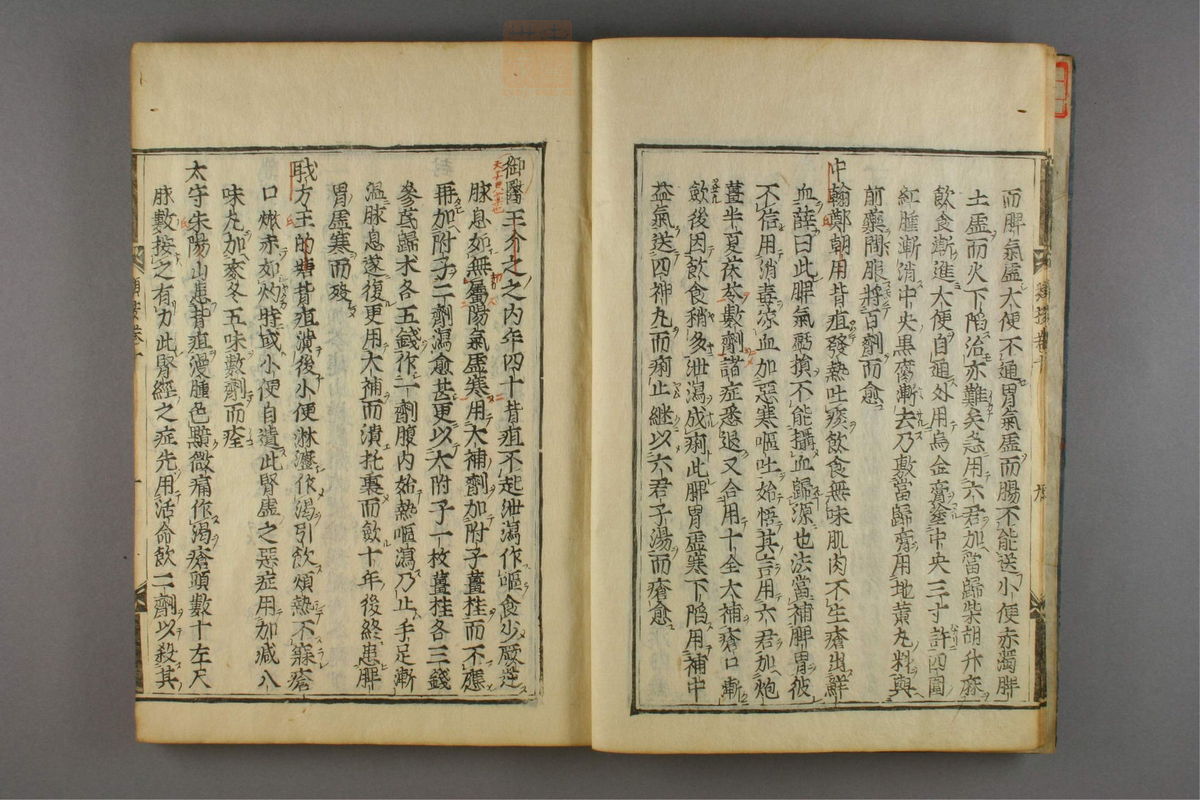 而脾氣虛大便不通胃氣虛而腸不能送小便赤濁脾
土虛而火下陷治亦難矣急用六君加當歸柴胡升麻
飲食漸進大便自通外用烏金膏塗中央三寸許四圍
紅腫漸消中央黑腐漸去乃敷當歸膏用地黄丸料與
前藥間服將百劑而愈
中翰鄭朝用背疽發熱吐痰飲食無味肌肉不生瘡出鮮
血薛曰此脾氣虧損不能攝血歸源也法當補脾胃彼
不信用消毒凉血加惡寒嘔吐始悟其言用六君加炮
薑半夏茯苓數劑諸症悉退又合用十全大補瘡口漸
歛後因飲食稍多泄瀉成痢此脾胃虛寒下陷用補中
益氣送四神丸而痢止継以六君子湯而瘡愈
御醫王介之之内年四十背疽不起泄瀉作嘔食少厥逆
脉息如無屬陽氣虛寒用大補劑加附子薑桂而不應
再加附子二劑瀉愈甚更以大附子一枚薑桂各三錢
參芪歸朮各五錢作一劑腹内始熱嘔瀉乃止手足漸
溫脉息遂復更用大補而潰托裏而歛十年後終患脾
胃虛寒而殁
我方王的塘背疽潰後小便淋瀝作渴引飲煩熱不寐瘡
口燉赤如灼時或小便自遺此腎虛之惡症用加减八
味丸加麥冬五味數劑而痊
太守朱陽山患背疽漫腫色黯微痛作渴瘡頭數十左尺
脉數按之有力此腎經之症先用活命飲二劑以殺其